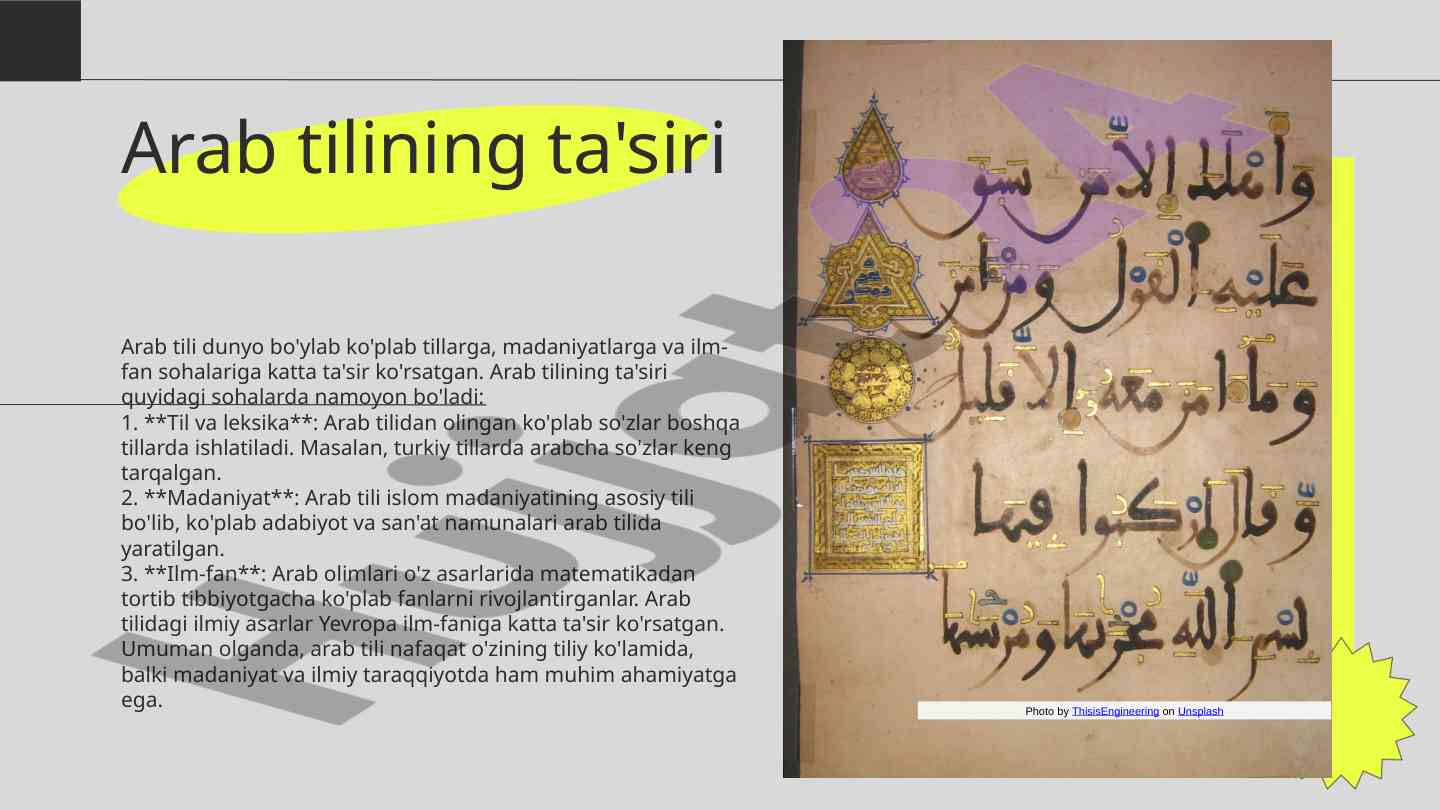 Arab tilining ta'siri
Arab tili dunyo bo'ylab ko'plab tillarga, madaniyatlarga va ilm-
fan sohalariga katta ta'sir ko'rsatgan. Arab tilining ta'siri
quyidagi sohalarda namoyon bo'ladi:
1. **Til va leksika**: Arab tilidan olingan ko'plab so'zlar boshqa
tillarda ishlatiladi. Masalan, turkiy tillarda arabcha so'zlar keng
tarqalgan.
2. **Madaniyat**: Arab tili islom madaniyatining asosiy tili
bo'lib, ko'plab adabiyot va san'at namunalari arab tilida
yaratilgan.
3. **Ilm-fan**: Arab olimlari o'z asarlarida matematikadan
tortib tibbiyotgacha ko'plab fanlarni rivojlantirganlar. Arab
tilidagi ilmiy asarlar Yevropa ilm-faniga katta ta'sir ko'rsatgan.
Umuman olganda, arab tili nafaqat o'zining tiliy ko'lamida,
balki madaniyat va ilmiy taraqqiyotda ham muhim ahamiyatga
ega.
وَأَهْلَكَ إِلَّا مَن سَبَقَ
عَلَيْهِ الْقَوْلُ وَمَنْ آمَنَ
وَمَا آمَنَ مَعَهُ إِلَّا قَلِيلٌ
وَقَالَ ارْكَبُوا فِيهَا
بِسْمِ اللَّهِ مَجْرَاهَا وَمُرْسَاهَا
Photo by ThisisEngineering on Unsplash